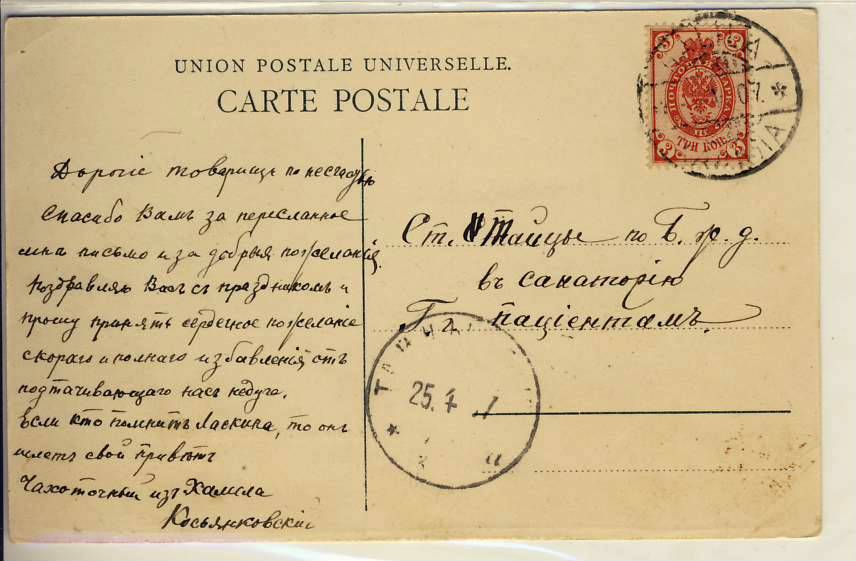 UNION POSTALE UNIVERSELLE.
CARTE POSTALE
Дорогіе товарищи по несчастью
Спасибо Вамъ за пересланное
мнѣ письмо и за добрыя пожеланія.
Поздравляю Васъ съ праздникомъ и
прошу принять сердечное пожеланіе
скораго и полнаго избавленія отъ
подтачивающаго насъ недуга.
Если кто помнитъ Ласкина, то онъ
шлетъ свой привѣтъ
Чахоточный изъ Халила
Косьянковскій
Ст. Тайцы по Б. ж. д.
въ санаторію
Гг. паціентамъ.
ТРИ КОП.
3 3
3 3
07.
ТАЙЦЫ
25.4
а